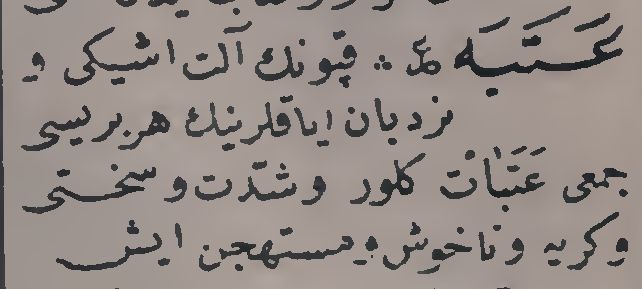 عَتَبَه ع‍ : قپونك آلت اشيكى و
نردبان اياقلرينك هر بريسى
جمعى عَتَبَاتْ كلور و شدّت و سختى
و كريه و ناخوش و مستهجن ايش